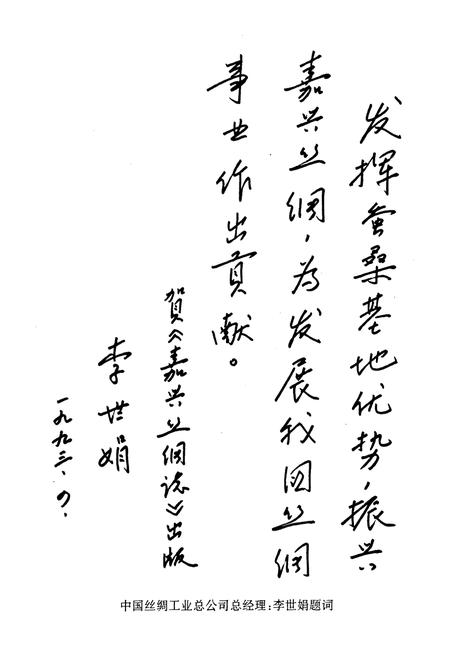 发挥蚕桑基地优势，振兴
嘉兴丝绸，为发展我国丝绸
事业作出贡献。
贺《嘉兴丝绸志》出版
李世娟
一九九三.四.
中国丝绸工业总公司总经理：李世娟题词